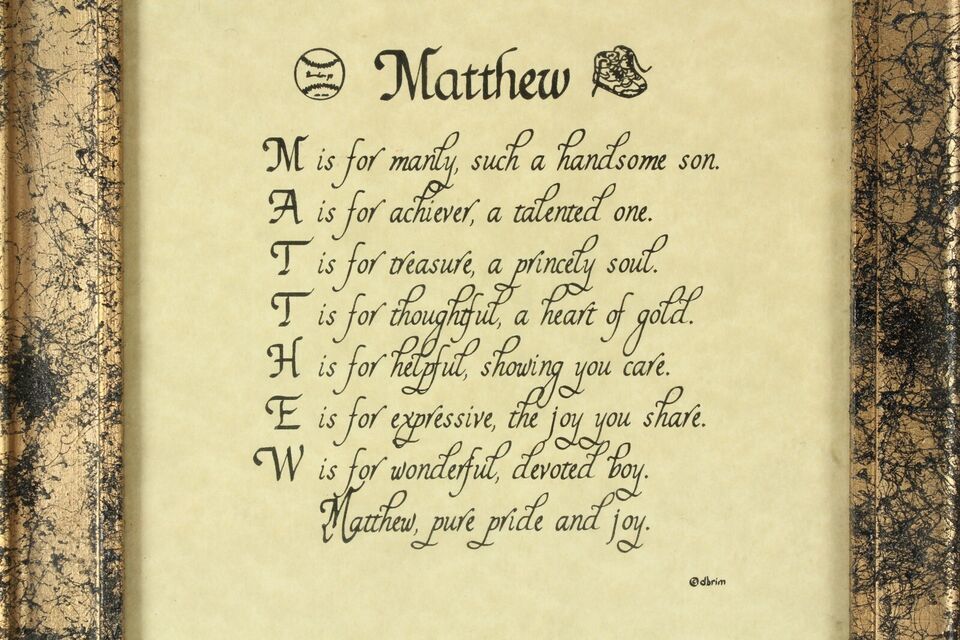 Matthew
M is for manly, such a handsome son.
A is for achiever, a talented one.
T is for treasure, a princely soul.
T is for thoughtful, a heart of gold.
H is for helpful, showing you care.
E is for expressive, the joy you share.
W is for wonderful, devoted boy.
Matthew, pure pride and joy.
©dbrim